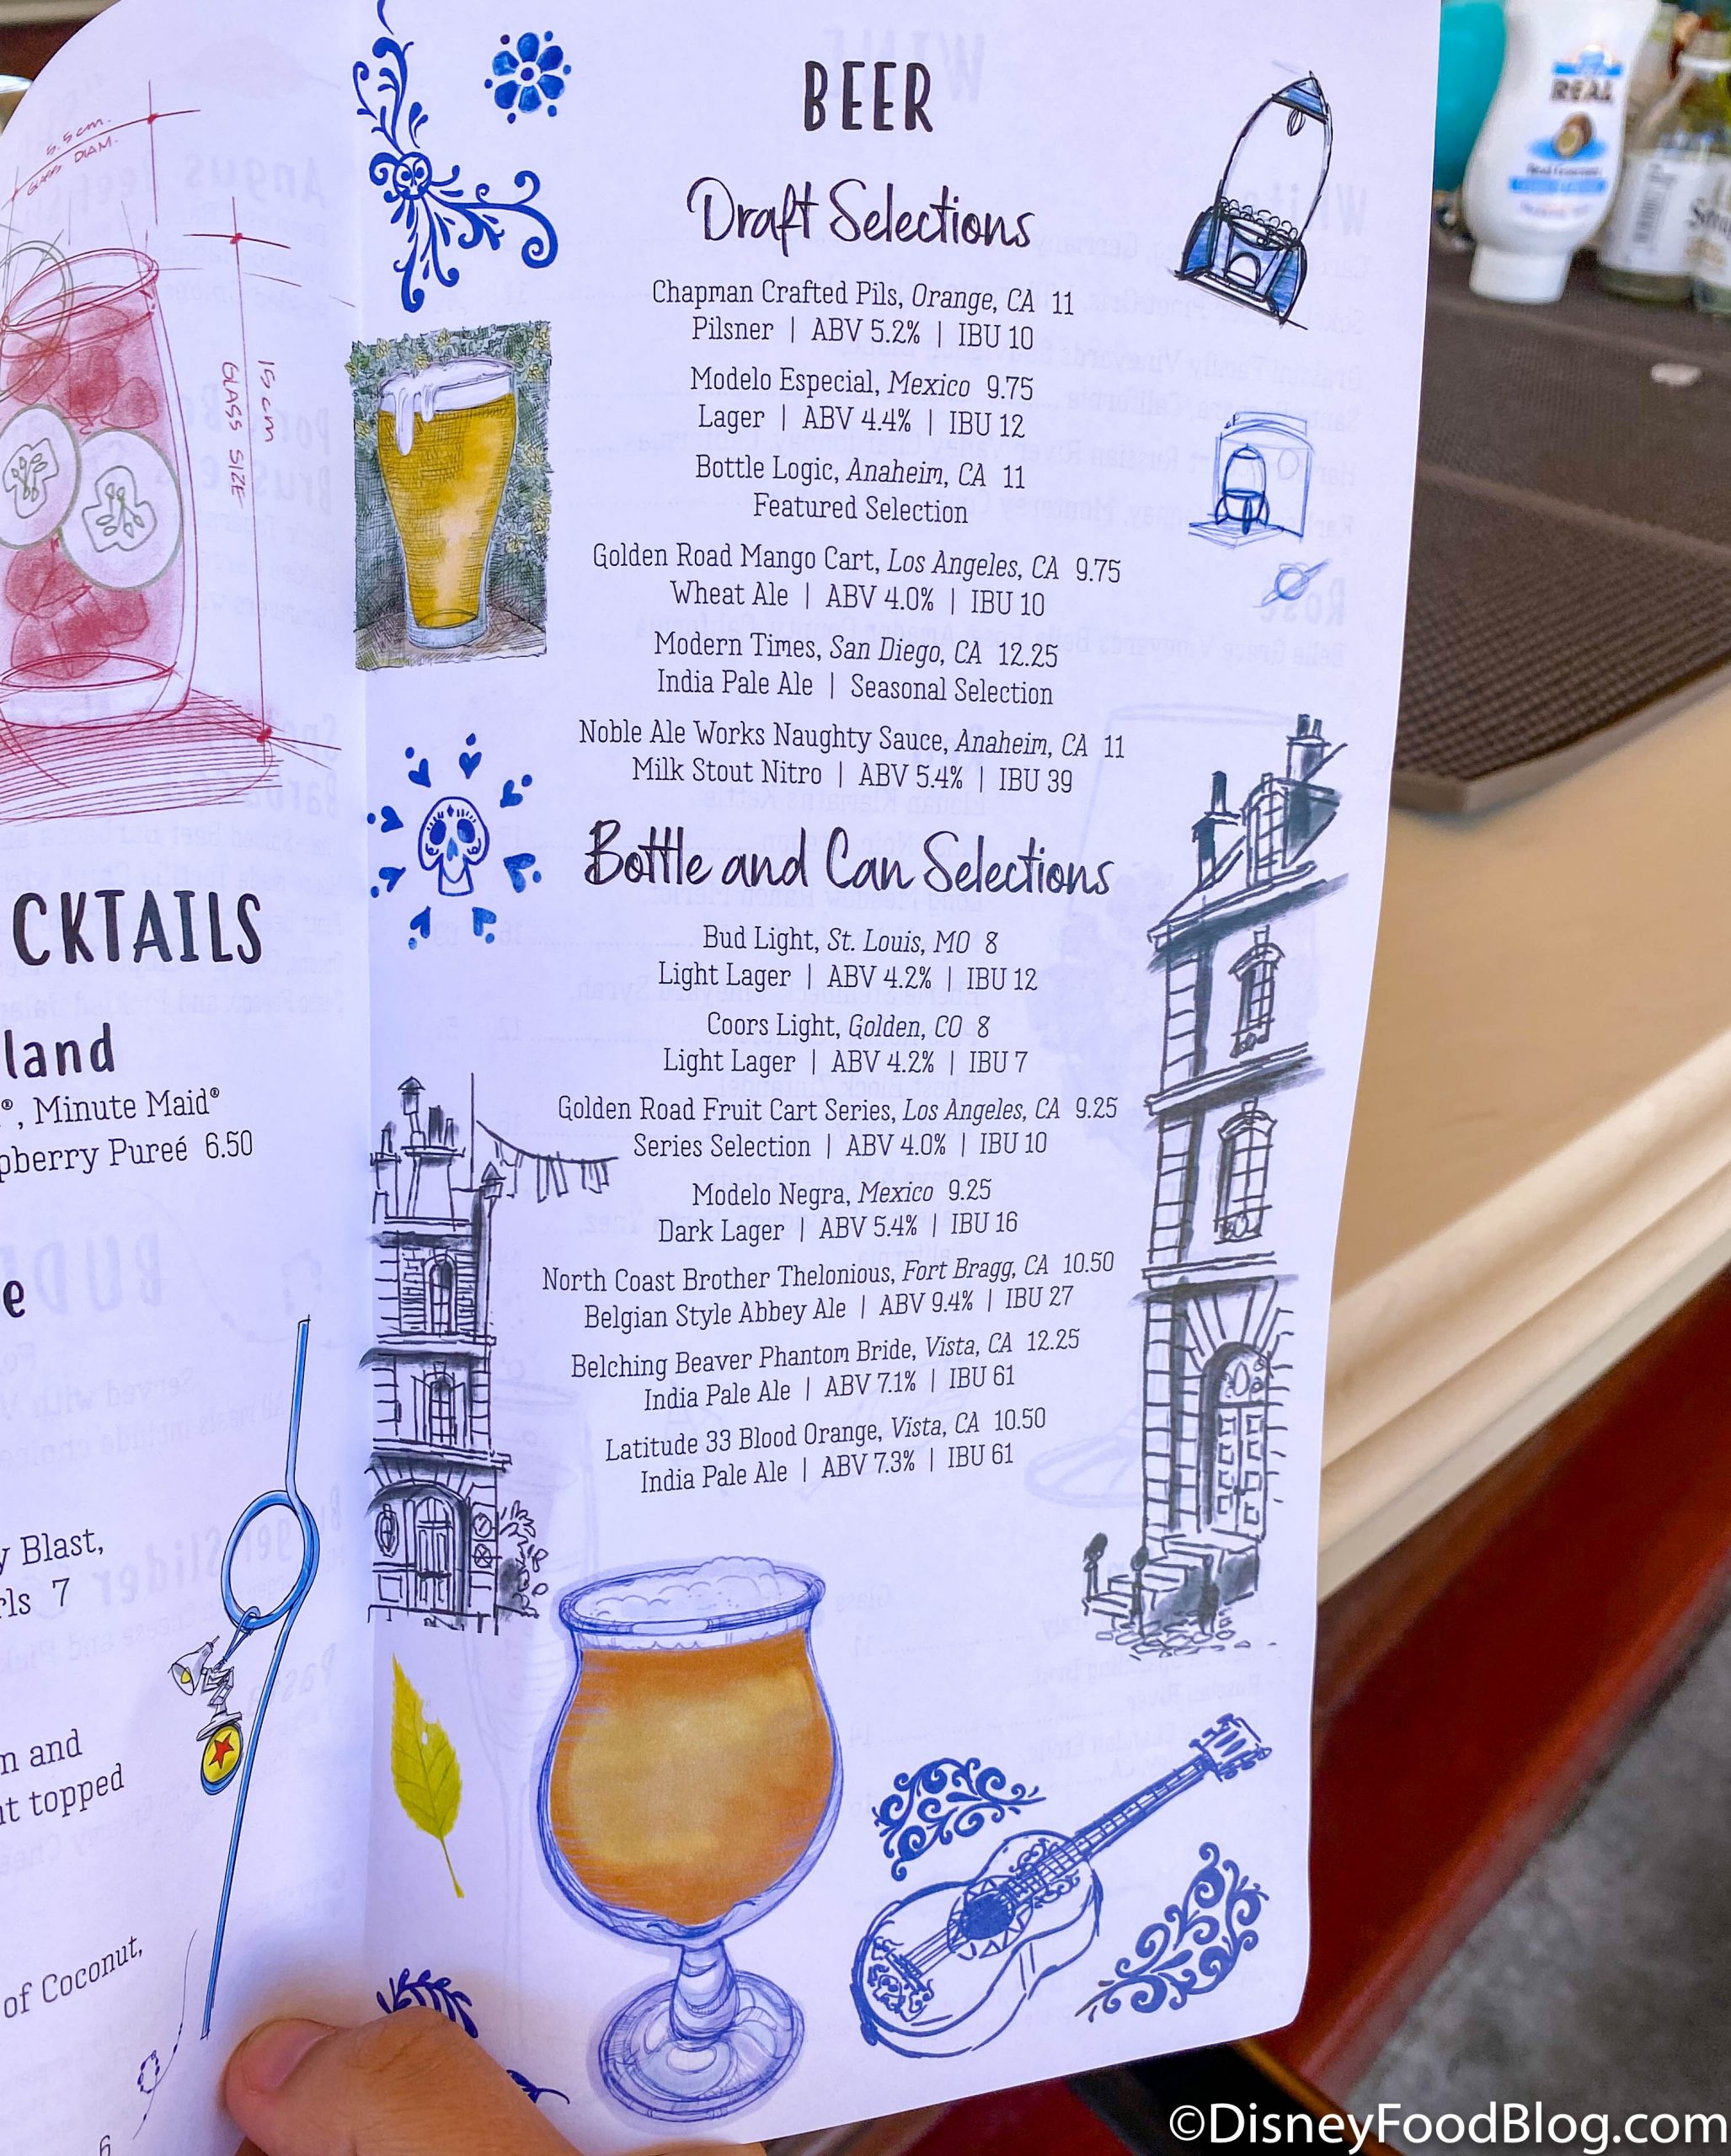 5.5cm.
GLASS DIAM.
15cm
GLASS SIZE
CKTAILS
land
®, Minute Maid®
pberry Pureé 6.50
e
y Blast,
rls 7
n and
t topped
of Coconut,
BEER
Draft Selections
Chapman Crafted Pils, Orange, CA 11
Pilsner | ABV 5.2% | IBU 10
Modelo Especial, Mexico 9.75
Lager | ABV 4.4% | IBU 12
Bottle Logic, Anaheim, CA 11
Featured Selection
Golden Road Mango Cart, Los Angeles, CA 9.75
Wheat Ale | ABV 4.0% | IBU 10
Modern Times, San Diego, CA 12.25
India Pale Ale | Seasonal Selection
Noble Ale Works Naughty Sauce, Anaheim, CA 11
Milk Stout Nitro | ABV 5.4% | IBU 39
Bottle and Can Selections
Bud Light, St. Louis, MO 8
Light Lager | ABV 4.2% | IBU 12
Coors Light, Golden, CO 8
Light Lager | ABV 4.2% | IBU 7
Golden Road Fruit Cart Series, Los Angeles, CA 9.25
Series Selection | ABV 4.0% | IBU 10
Modelo Negra, Mexico 9.25
Dark Lager | ABV 5.4% | IBU 16
North Coast Brother Thelonious, Fort Bragg, CA 10.50
Belgian Style Abbey Ale | ABV 9.4% | IBU 27
Belching Beaver Phantom Bride, Vista, CA 12.25
India Pale Ale | ABV 7.1% | IBU 61
Latitude 33 Blood Orange, Vista, CA 10.50
India Pale Ale | ABV 7.3% | IBU 61
REAL
©DisneyFoodBlog.com